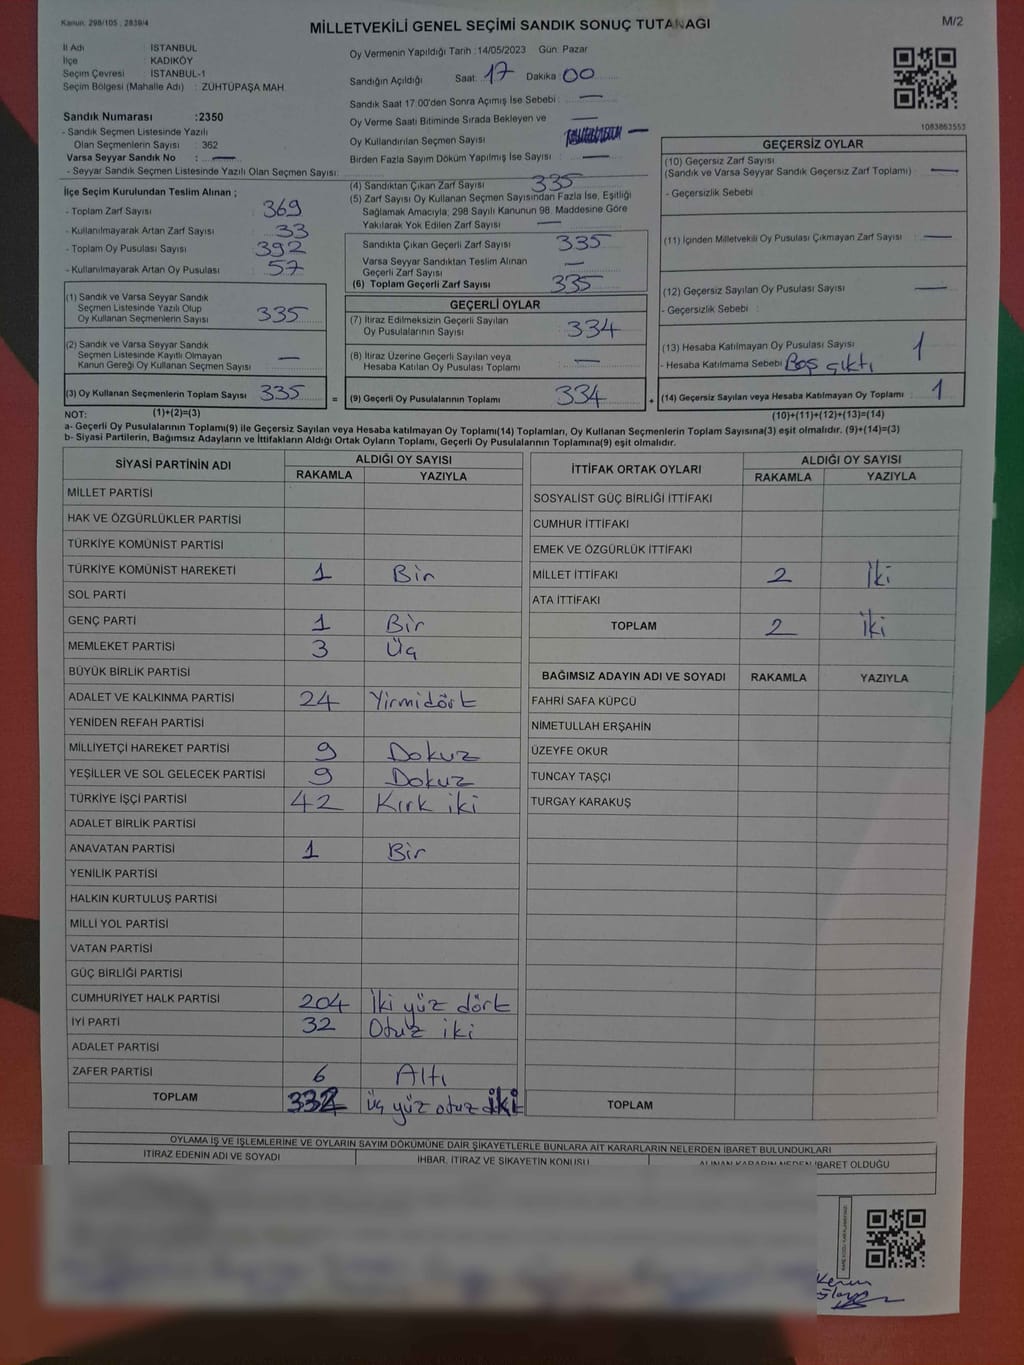 Kanun: 298/105 : 2839/4
MİLLETVEKİLİ GENEL SEÇİMİ SANDIK SONUÇ TUTANAĞI
M/2
İl Adı : İSTANBUL
İlçe : KADIKÖY
Seçim Çevresi : İSTANBUL-1
Seçim Bölgesi (Mahalle Adı) : ZÜHTÜPAŞA MAH.
Oy Vermenin Yapıldığı Tarih :14/05/2023 Gün: Pazar
Sandığın Açıldığı Saat: 17 Dakika 00
Sandık Saat 17:00'den Sonra Açımış İse Sebebi : —
Oy Verme Saati Bitiminde Sırada Bekleyen ve
Oy Kullandırılan Seçmen Sayısı —
Birden Fazla Sayım Döküm Yapılmış İse Sayısı : —
1083863553
Sandık Numarası :2350
- Sandık Seçmen Listesinde Yazılı
Olan Seçmenlerin Sayısı : 362
Varsa Seyyar Sandık No : —
- Seyyar Sandık Seçmen Listesinde Yazılı Olan Seçmen Sayısı:
İlçe Seçim Kurulundan Teslim Alınan ;
- Toplam Zarf Sayısı 369
- Kullanılmayarak Artan Zarf Sayısı 33
- Toplam Oy Pusulası Sayısı 392
- Kullanılmayarak Artan Oy Pusulası 57
(1) Sandık ve Varsa Seyyar Sandık
Seçmen Listesinde Yazılı Olup
Oy Kullanan Seçmenlerin Sayısı 335
(2) Sandık ve Varsa Seyyar Sandık
Seçmen Listesinde Kayıtlı Olmayan
Kanun Gereği Oy Kullanan Seçmen Sayısı —
(3) Oy Kullanan Seçmenlerin Toplam Sayısı 335
(4) Sandıktan Çıkan Zarf Sayısı 335
(5) Zarf Sayısı Oy Kullanan Seçmen Sayısından Fazla İse, Eşitliği
Sağlamak Amacıyla; 298 Sayılı Kanunun 98. Maddesine Göre
Yakılarak Yok Edilen Zarf Sayısı —
Sandıkta Çıkan Geçerli Zarf Sayısı 335
Varsa Seyyar Sandıktan Teslim Alınan
Geçerli Zarf Sayısı —
(6) Toplam Geçerli Zarf Sayısı 335
GEÇERLİ OYLAR
(7) İtiraz Edilmeksizin Geçerli Sayılan
Oy Pusulalarının Sayısı 334
(8) İtiraz Üzerine Geçerli Sayılan veya
Hesaba Katılan Oy Pusulası Toplamı —
= (9) Geçerli Oy Pusulalarının Toplamı 334
GEÇERSİZ OYLAR
(10) Geçersiz Zarf Sayısı
(Sandık ve Varsa Seyyar Sandık Geçersiz Zarf Toplamı) —
- Geçersizlik Sebebi :
(11) İçinden Milletvekili Oy Pusulası Çıkmayan Zarf Sayısı —
(12) Geçersiz Sayılan Oy Pusulası Sayısı —
- Geçersizlik Sebebi :
(13) Hesaba Katılmayan Oy Pusulası Sayısı 1
- Hesaba Katılmama Sebebi Boş çıktı
+ (14) Geçersiz Sayılan veya Hesaba Katılmayan Oy Toplamı 1
NOT: (1)+(2)=(3)
(10)+(11)+(12)+(13)=(14)
a- Geçerli Oy Pusulalarının Toplamı(9) ile Geçersiz Sayılan veya Hesaba katılmayan Oy Toplamı(14) Toplamları, Oy Kullanan Seçmenlerin Toplam Sayısına(3) eşit olmalıdır. (9)+(14)=(3)
b- Siyasi Partilerin, Bağımsız Adayların ve İttifakların Aldığı Ortak Oyların Toplamı, Geçerli Oy Pusulalarının Toplamına(9) eşit olmalıdır.
SİYASİ PARTİNİN ADI ALDIĞI OY SAYISI
RAKAMLA YAZIYLA
MİLLET PARTİSİ
HAK VE ÖZGÜRLÜKLER PARTİSİ
TÜRKİYE KOMÜNİST PARTİSİ
TÜRKİYE KOMÜNİST HAREKETİ 1 Bir
SOL PARTİ
GENÇ PARTİ 1 Bir
MEMLEKET PARTİSİ 3 Üç
BÜYÜK BİRLİK PARTİSİ
ADALET VE KALKINMA PARTİSİ 24 Yirmidört
YENİDEN REFAH PARTİSİ
MİLLİYETÇİ HAREKET PARTİSİ 9 Dokuz
YEŞİLLER VE SOL GELECEK PARTİSİ 9 Dokuz
TÜRKİYE İŞÇİ PARTİSİ 42 Kırk iki
ADALET BİRLİK PARTİSİ
ANAVATAN PARTİSİ 1 Bir
YENİLİK PARTİSİ
HALKIN KURTULUŞ PARTİSİ
MİLLİ YOL PARTİSİ
VATAN PARTİSİ
GÜÇ BİRLİĞİ PARTİSİ
CUMHURİYET HALK PARTİSİ 204 İki yüz dört
İYİ PARTİ 32 Otuz iki
ADALET PARTİSİ
ZAFER PARTİSİ 6 Altı
TOPLAM 332 üç yüz otuz iki
İTTİFAK ORTAK OYLARI ALDIĞI OY SAYISI
RAKAMLA YAZIYLA
SOSYALİST GÜÇ BİRLİĞİ İTTİFAKI
CUMHUR İTTİFAKI
EMEK VE ÖZGÜRLÜK İTTİFAKI
MİLLET İTTİFAKI 2 İki
ATA İTTİFAKI
TOPLAM 2 İki
BAĞIMSIZ ADAYIN ADI VE SOYADI RAKAMLA YAZIYLA
FAHRİ SAFA KÜPCÜ
NİMETULLAH ERŞAHİN
ÜZEYFE OKUR
TUNCAY TAŞÇI
TURGAY KARAKUŞ
TOPLAM
OYLAMA İŞ VE İŞLEMLERİNE VE OYLARIN SAYIM DÖKÜMÜNE DAİR ŞİKAYETLERLE BUNLARA AİT KARARLARIN NELERDEN İBARET BULUNDUKLARI
İTİRAZ EDENİN ADI VE SOYADI İHBAR, İTİRAZ VE ŞİKAYETİN KONUSU ALINAN KARARIN NEDEN İBARET OLDUĞU